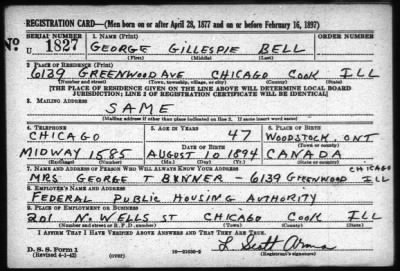 REGISTRATION CARD—(Men born on or after April 28, 1877 and on or before February 16, 1897)
SERIAL NUMBER 1. NAME (Print) ORDER NUMBER
No U 1827 GEORGE GILLESPIE BELL
(First) (Middle) (Last)
2. PLACE OF RESIDENCE (Print)
6139 GREENWOOD AVE CHICAGO COOK ILL
(Number and street) (Town, township, village, or city) (County) (State)
[THE PLACE OF RESIDENCE GIVEN ON THE LINE ABOVE WILL DETERMINE LOCAL BOARD
JURISDICTION; LINE 2 OF REGISTRATION CERTIFICATE WILL BE IDENTICAL]
3. MAILING ADDRESS
SAME
[Mailing address if other than place indicated on line 2. If same insert word same]
4. TELEPHONE 5. AGE IN YEARS 6. PLACE OF BIRTH
CHICAGO 47 WOODSTOCK, ONT
DATE OF BIRTH (Town or county)
MIDWAY 1585 AUGUST 10 1894 CANADA
(Exchange) (Number) (Mo.) (Day) (Yr.) (State or country)
7. NAME AND ADDRESS OF PERSON WHO WILL ALWAYS KNOW YOUR ADDRESS CHICAGO
MRS GEORGE T BUNNER - 6139 GREENWOOD ILL
8. EMPLOYER'S NAME AND ADDRESS
FEDERAL PUBLIC HOUSING AUTHORITY
9. PLACE OF EMPLOYMENT OR BUSINESS
201 N. WELLS ST CHICAGO COOK ILL
(Number and street or R. F. D. number) (Town) (County) (State)
I AFFIRM THAT I HAVE VERIFIED ABOVE ANSWERS AND THAT THEY ARE TRUE.
D. S. S. Form 1
(Revised 4-1-42) (over) L. Scott
(Registrant's signature)